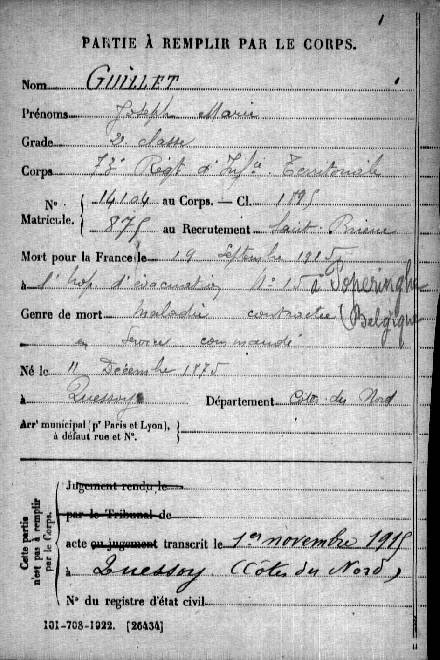 1
PARTIE À REMPLIR PAR LE CORPS.
Nom GUILLET
Prénoms Joseph Marie
Grade 2e classe
Corps 73e Regt d'Infie Territoriale
N° Matricule. 14104 au Corps. — Cl. 1895
875 au Recrutement Saint-Brieuc
Mort pour la France le 19 Septembre 1915
à l'hop d'évacuation N° 15 à Poperinghe
Genre de mort maladie contractée (Belgique
en Service commandé
Né le 11 Décembre 1875
à Quessoy Département Côtes du Nord
Arrt municipal (pr Paris et Lyon),
à défaut rue et N°.
Cette partie n'est pas à remplir par le Corps.
Jugement rendu le
par le Tribunal de
acte ou jugement transcrit le 1er novembre 1915
à Quessoy (Côtes du Nord)
N° du registre d'état civil
101-708-1922. [26434]